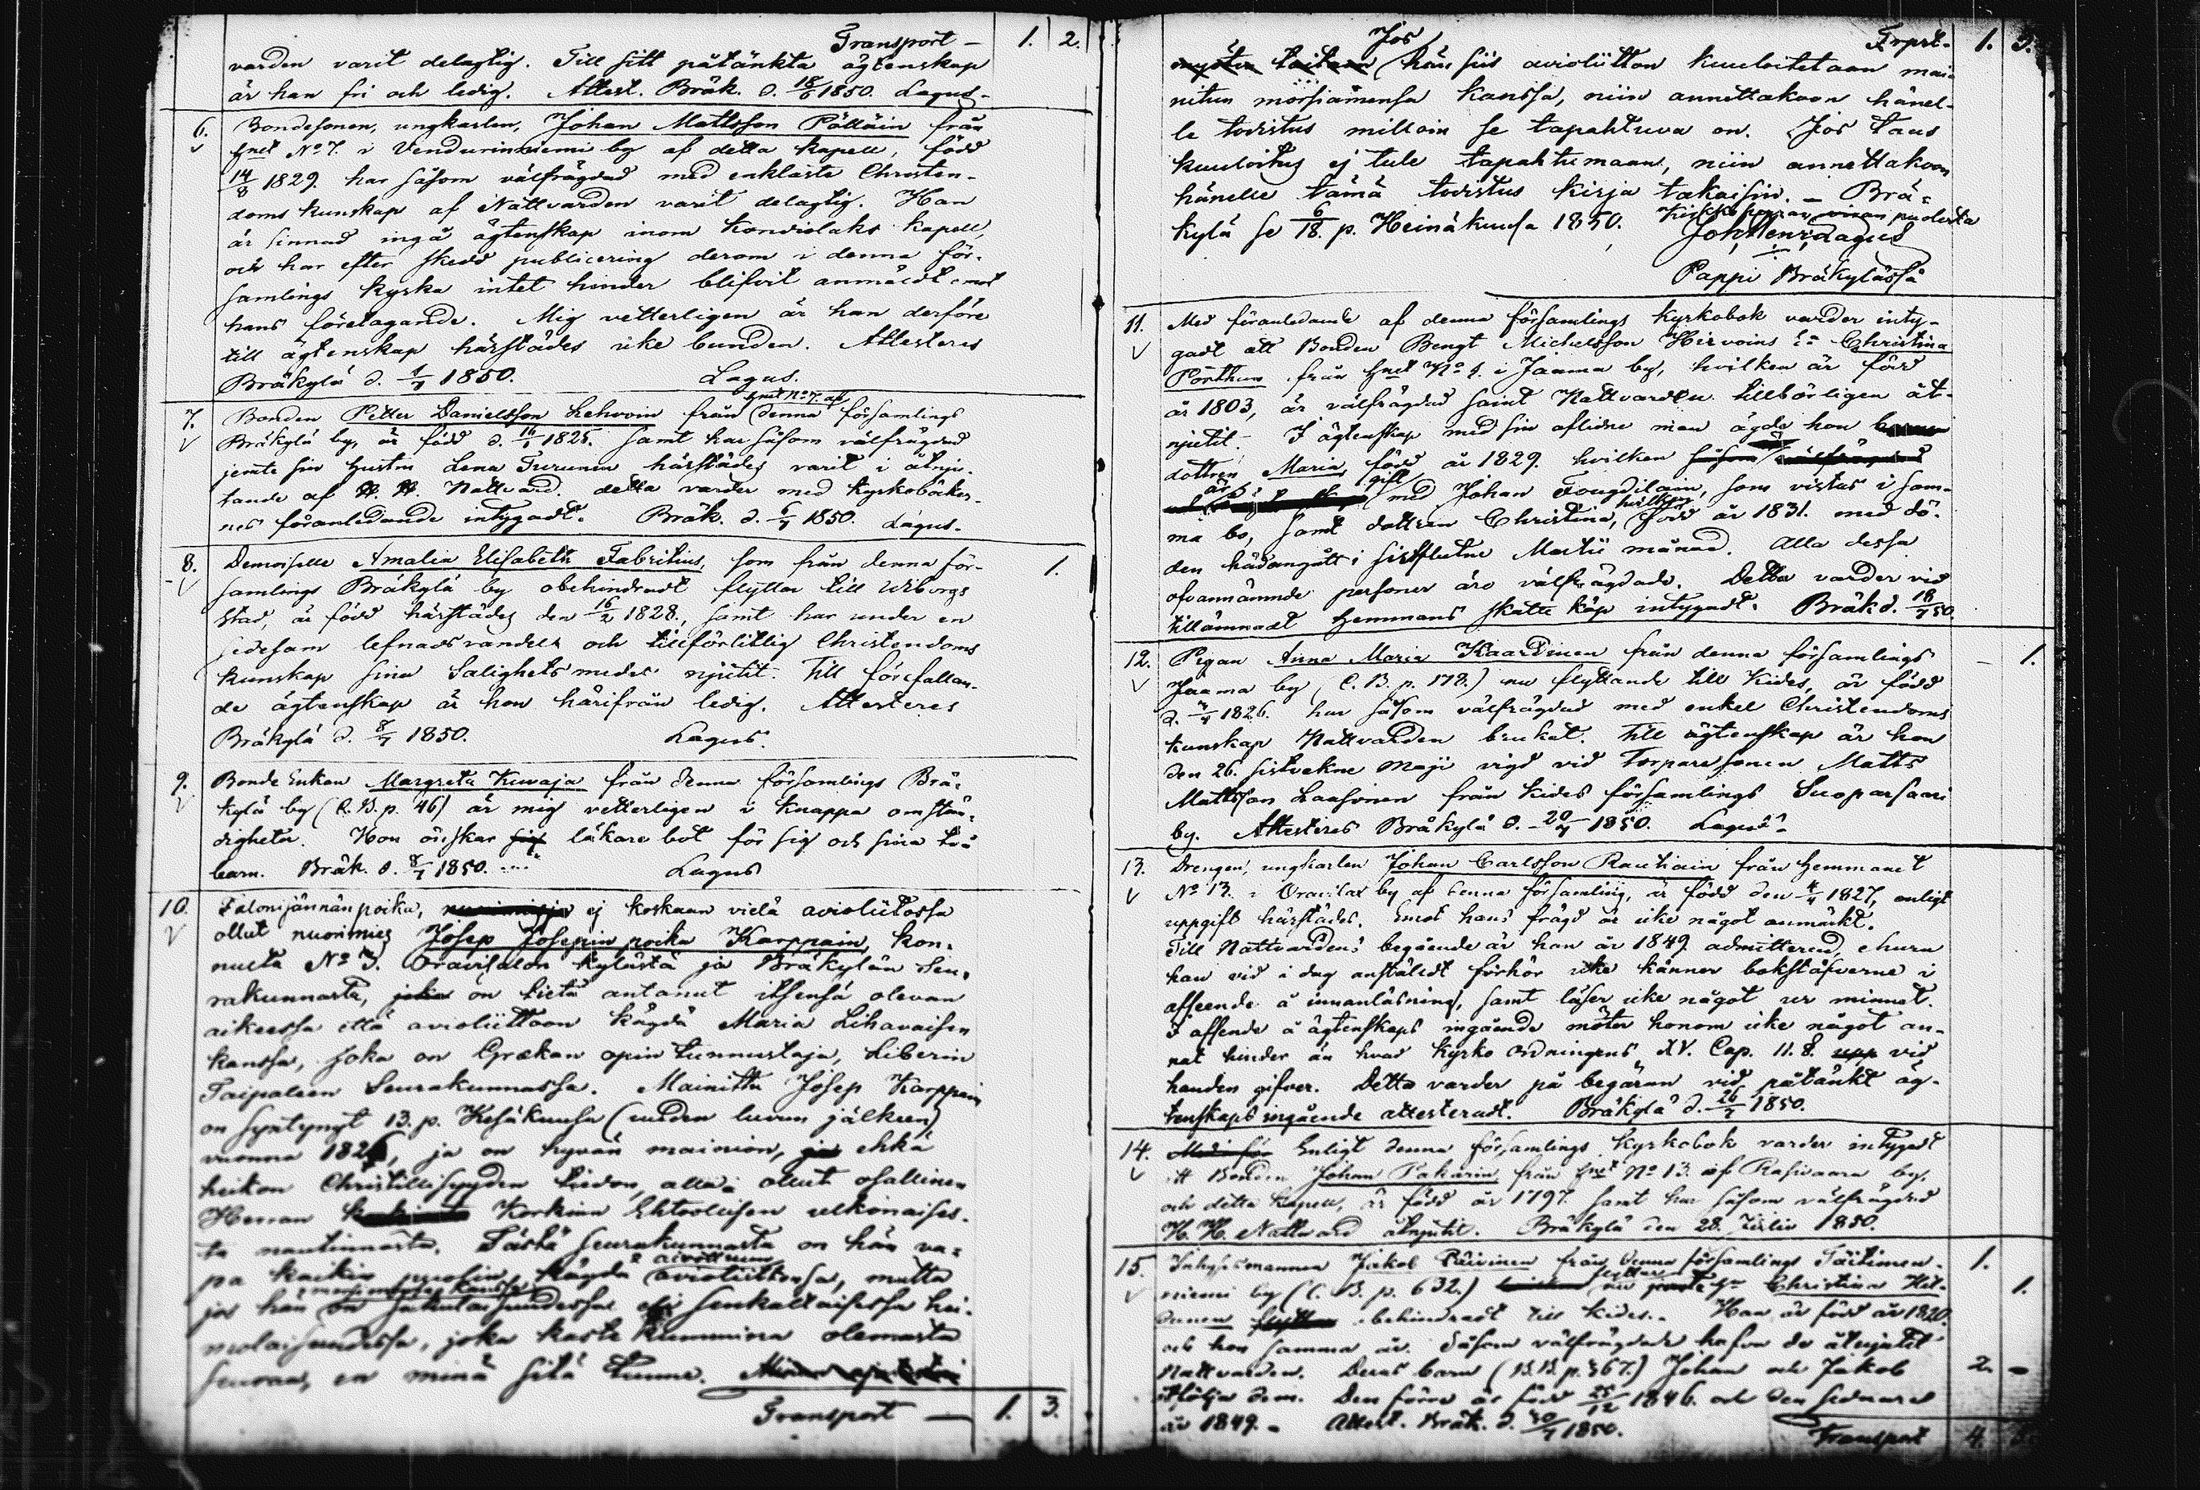 Transport — 1. 2.
varden varit delagtig. Till sitt påtänkta ägtenskap
är han fri och ledig. Attest. Bräk. d. 18/6 1850. Lagus.
6. Bondesonen, ungkarlen, Johan Mattsson Pölläin från
hmt No 7. i Vendurinniemi by af detta Kapell, född
14/8 1829. har såsom välfrägdad med enklaste Christen-
doms kunskap af Nattvarden varit delagtig. Han
är sinnad ingå ägtenskap inom Kondiolaks Kapell,
och har efter skedd publicering derom i denna för-
samlings kyrka intet hinder blifvit anmäldt emot
hans företagande. Mig vetterligen är han derföre
till ägtenskap härstädes icke bunden. Attesteres
Bräkylä d. 1/7 1850. Lagus.
7. Bonden Petter Danielsson Lehvoin från hmt No 7. af denna församlings
Bräkylä by, är född d. 16/1 1825. samt har såsom välfrägdad
jemte sin hustru Lena Turunen härstädes varit i åtnju-
tande af H. H. Nattvard. detta varder med Kyrkobäker-
nes föranledande intygadt. Bräk. d. 6/7 1850. Lagus.
8. Demoiselle Amalia Elisabeth Fabritius, som från denna för- 1.
samlings Bräkylä by obehindradt flyttar till Wiborgs
stad, är född härstädes den 16/2 1828., samt har under en
sedesam lefnadsvandel och tillförlitlig Christendoms
kunskap sina Salighetsmedel njutit. Till förefallan-
de ägtenskap är hon härifrån ledig. Attesteres
Bräkylä d. 8/7 1850. Lagus.
9. Bonde Enkan Margreta Kuwaja från denna församlings Brä-
kylä by (C. B. p. 46) är mig vetterligen i knappa omstän-
digheter. Hon önskar läkare bot för sig och sina två
barn. Bräk. d. 8/7 1850. Lagus
10. Talonisännän poika, ej koskaan vielä avioliitossa
ollut nuorimies Josep Josepin poika Karppain, kon-
nusta No 3. Oravisalon kylästä ja Bräkylän Seu-
rakunnasta, on tietä antanut itsensä olevan
aikeessa että avioliittoon käydä Maria Lihavaisen
kanssa, joka on Grækan opin tunnustaja, Liberin
Taipaleen Seurakunnassa. Mainittu Josep Karppain
on syntynyt 13. p. Kesäkuusa (uuden luvun jälkeen)
vuonna 1826, ja on hyvän mainion, ehkä
heikon Christillisyyden tiedon, alla ollut osallinen
Herran Korkian Ehtoollisen ulkonaises-
ta nautinnasta. Tästä Seurakunnasta on hän va-
pa kaikin puolin käydä avioliittohon, mutta
jos hän on sukulaisuudessa eli senkaltaisessa hei-
molaisuudessa, joka kaste kummina olemasta
seuraa, en minä sitä tunne.
Transport — 1. 3.
Frprt. 1. 3.
Jos hän siis avioliitton kuuloitetaan mai-
nitun morsiamensa kanssa, niin annettakoon hänel-
le todistus milloin se tapahtuva on. Jos taas
kuuloitus ej tule tapahtumaan, niin annettakoon
hänelle tämä todistus kirja takaisin. — Brä-
kylä se 6/18. p. Heinäkuusa 1850. Kirkkoherran viran puolesta
Joh. Henr. Lagus
Pappi Bräkylässä
11. Med föranledande af denna församlings Kyrkobok varder inty-
gadt att Bonden Bengt Michelsson Hirvoins Ea Christina
Pörthun från hmt No 1. i Jaama by, hvilken är född
år 1803, är välfrägdad samt Nattvarden tillbörligen åt-
njutit. I ägtenskap med sin aflidne man ägde hon
dottren Maria, född år 1829. hvilken
är gift med Johan Tougdilain, som vistas i sam-
ma bo, samt dottren Christina, hvilken född år 1831. med dö-
den hädangått i sistlutne Martii månad. Alla dessa
ofvannämnde personer äro välfrägdade. Detta varder vid
tillämnadt Hemmans skatte köp intygadt. Bräk d. 18/7 50.
12. Pigan Anna Maria Kaardinen från denna församlings — 1.
Jaama by (C. B. p. 178.) nu flyttande till Kides, är född
d. 4/4 1826. har såsom välfrägdad med enkel Christendoms
kunskap Nattvarden brukat. Till ägtenskap är hon
den 26. sistvekne Maji vigd vid Torparesonen Matts
Mattsson Laasonen från Kides församlings Suoparsaari
by. Attesteres Bräkylä d. 20/7 1850. Lagus.
13. Drengen, ungkarlen Johan Carlsson Rautiain från Hemmanet
No 13. i Oravisalo by af denna församling, är född den 4/4 1827, enligt
uppgift härstädes. Emot hans frägd är icke något anmärkt.
Till Nattvardens begående är han år 1849 admitterad, ehuru
han vid i dag anstäldt förhör icke känner bokstäfverne i
afseende å innanläsning, samt läser icke något ur minnet.
I afseende å ägtenskaps ingående möter honom icke något an-
nat hinder än hvad Kyrko Ordningens XV. Cap. 11. §. vid
handen gifver. Detta varder på begäran vid påtänkt äg-
tenskaps ingående attesteradt. Bräkylä d. 26/7 1850.
14. Enligt denna församlings Kyrkobok varder intygadt
att Bonden Johan Pakarin från hmt No 13. af Rasivaara by,
och detta Kapell, är född år 1797. samt har såsom välfrägdad
H. H. Nattvard åtnjutit. Bräkylä den 28. Julii 1850.
15. Inhysesmannen Jakob Päivinen från denna församlings Täitimen- 1.
niemi by (C. B. p. 632.) flyttar Christina Hil- 1.
dunen obehindradt till Kides. Han är född år 1820.
och hon samma år. Såsom välfrägdade hafva de åtnjutit
Nattvarden. Deras barn (B.B. p. 367.) Johan och Jakob 2. —
åtfölja dem. Den förre är född 25/12 1846. och den sednare
år 1849. — Attest. Bräk. d. 30/7 1850.
Transport 4.